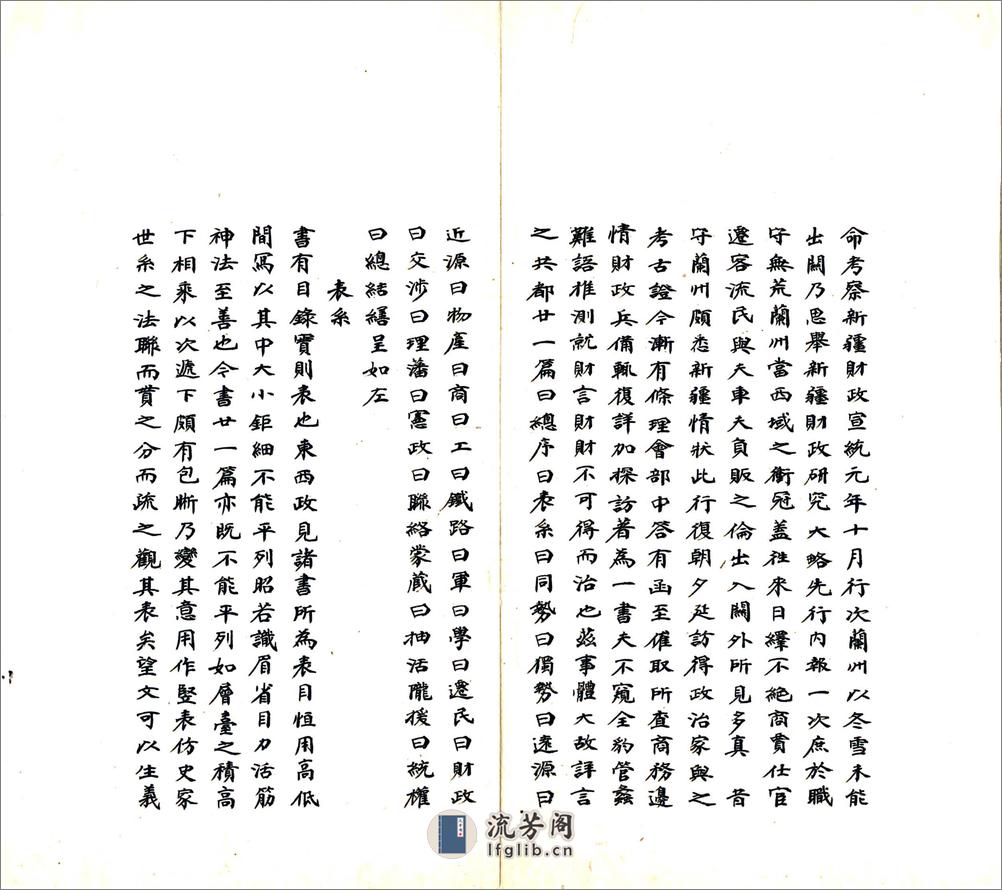 命考察新疆財政宣統元年十月行次蘭州以冬雪未能
出關乃思舉新疆財政研究大略先行內報一次庶於職
守無荒蘭州當西域之衝冠蓋往來日繹不絕商賈仕宦
遷客流民與夫車夫負販之倫出入關外所見多真 昔
守蘭州頗悉新疆情狀此行復朝夕延訪得政治家與之
考古證今漸有條理會部中答有函至催取所查商務邊
情財政兵備輒復詳加探訪著為一書夫不窺全豹管蠡
難語推測就財言財財不可得而治也茲事體大故詳言
之共都廿一篇曰總序曰表系曰同勢曰獨勢曰遠源曰
近源曰物產曰商曰工曰鐵路曰軍曰學曰遷民曰財政
曰交涉曰理藩曰憲政曰聯絡蒙藏曰抽活隴援曰統權
曰總結繕呈如左
表系
書有目錄實則表也東西政見諸書所為表目恒用高低
間寫以其中大小鉅細不能平列昭若識眉省目力活筋
神法至善也今書廿一篇亦既不能平列如層臺之積高
下相乘以次遞下頗有包晰乃變其意用作豎表仿史家
世系之法聯而貫之分而疏之觀其表矣望文可以生義
流芳阁
lfglib.cn